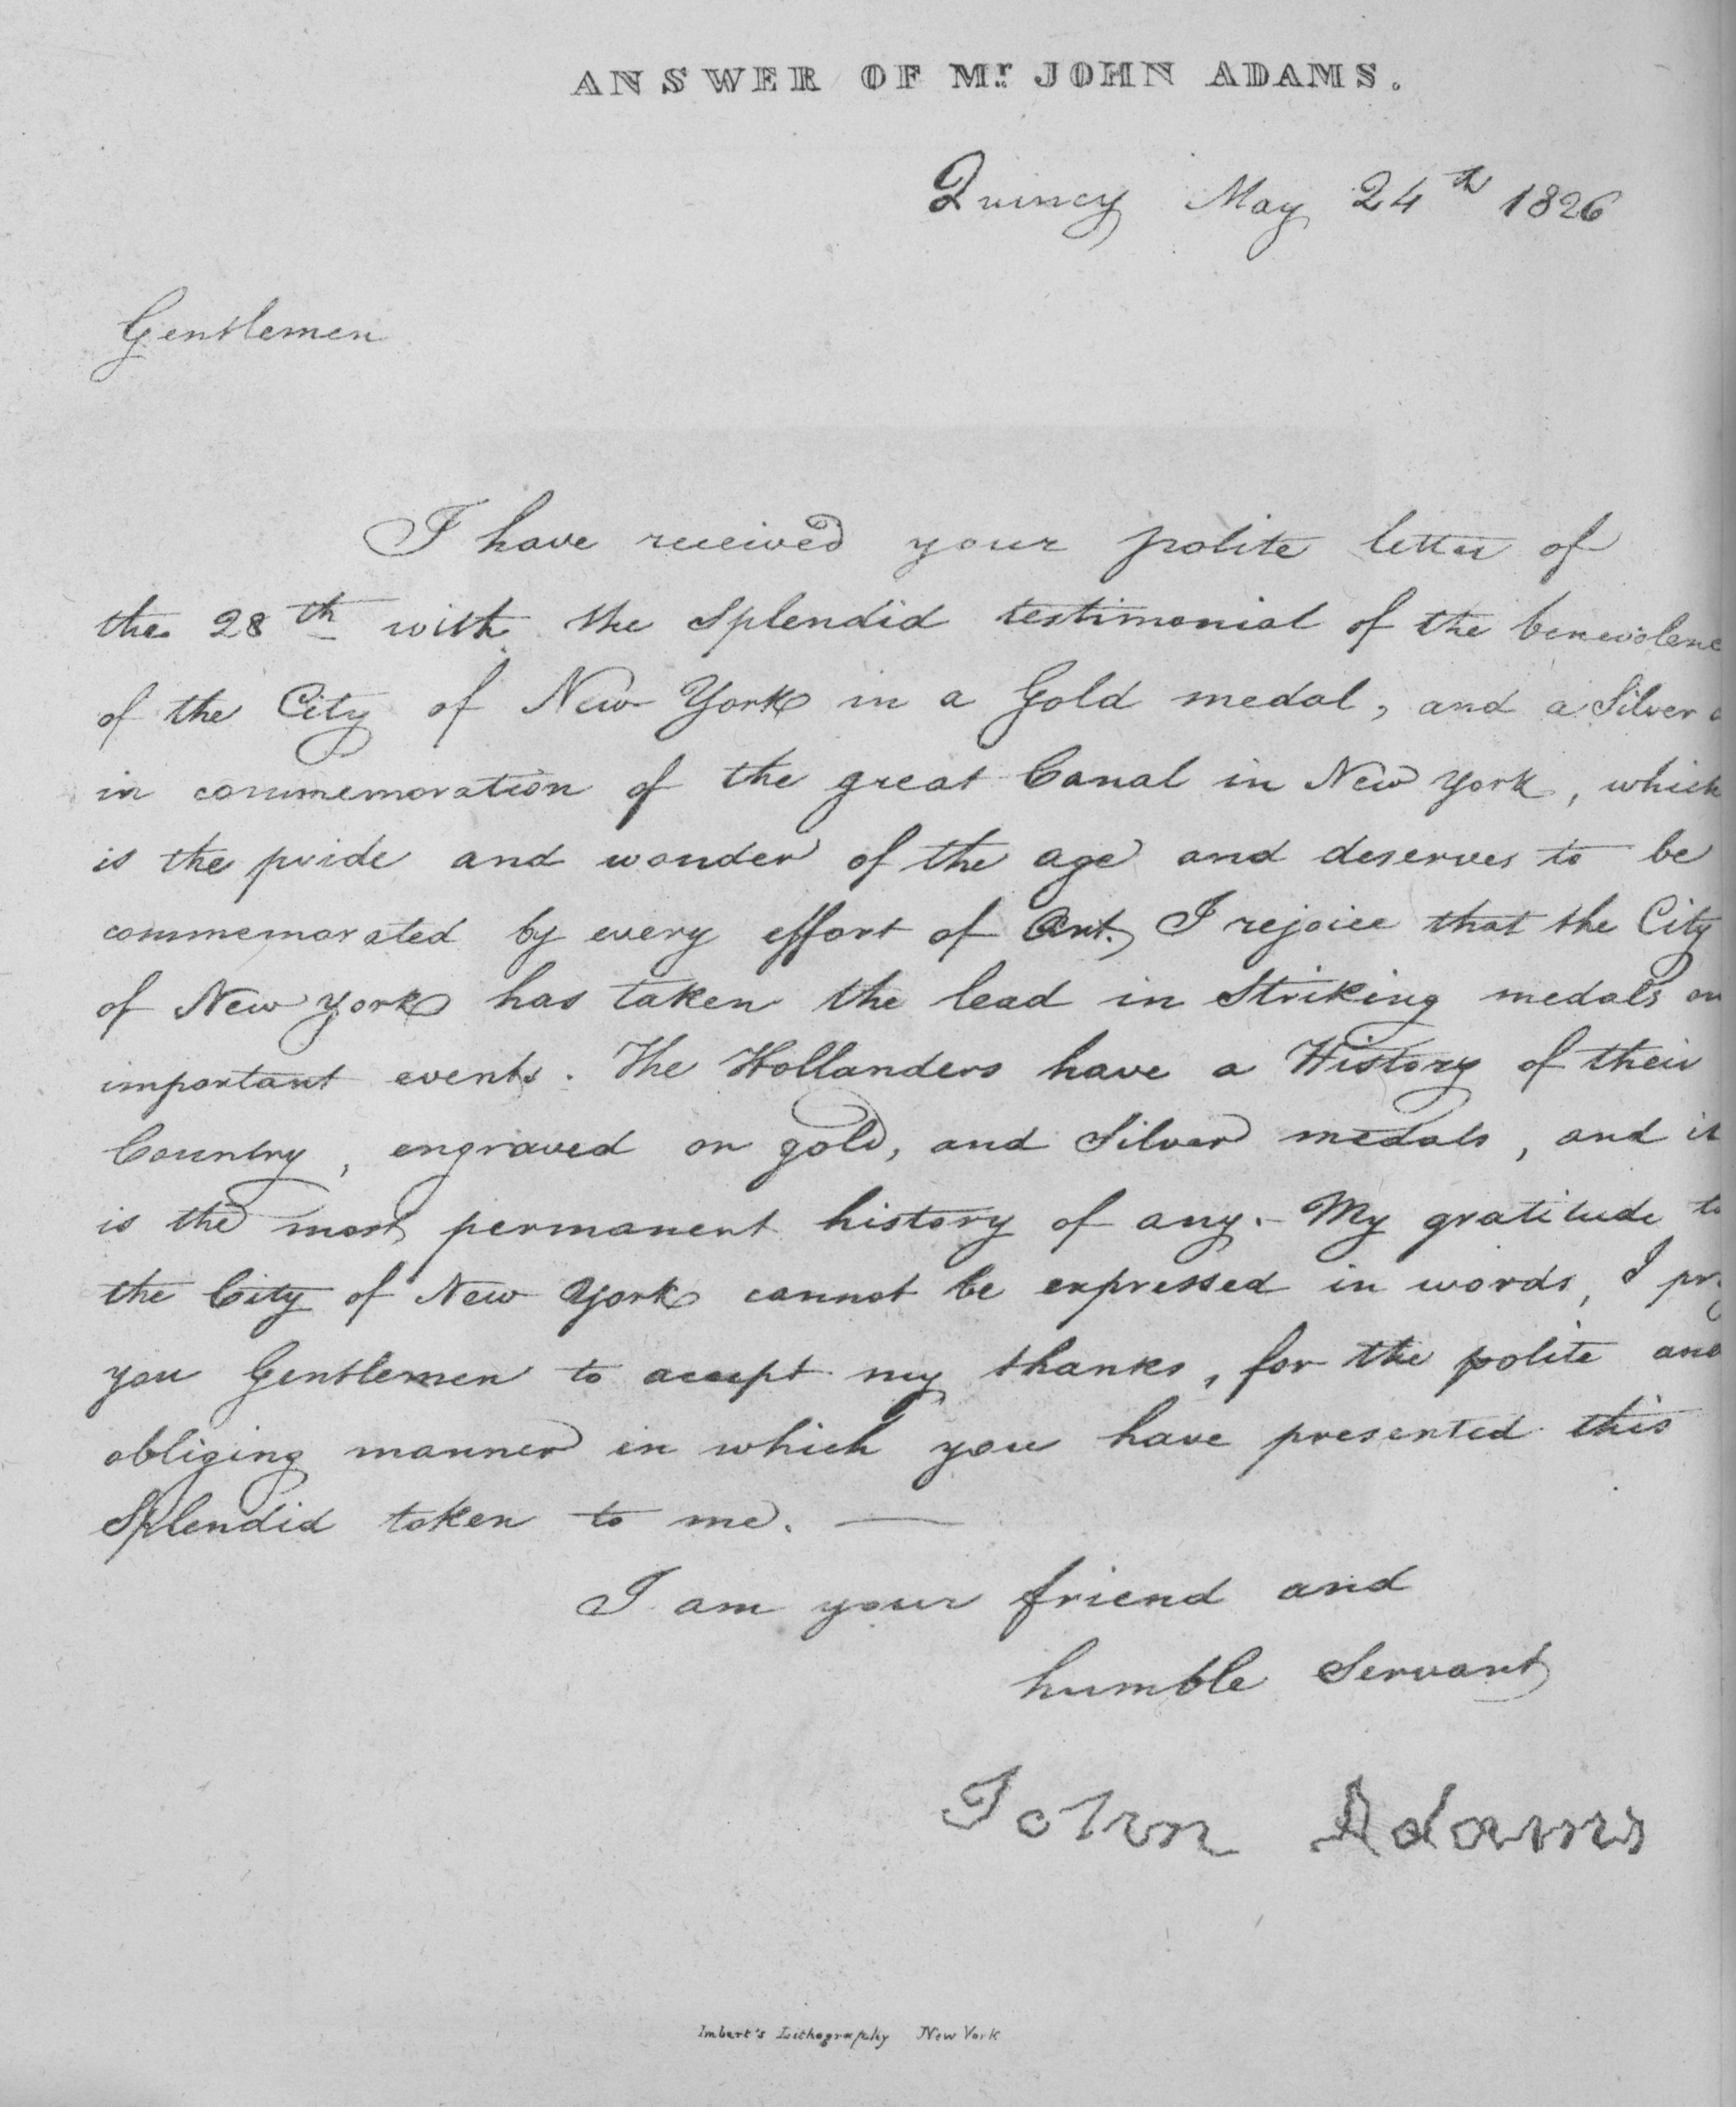 ANSWER OF Mr. JOHN ADAMS.
Quincy May 24th 1826
Gentlemen
I have received your polite letter of
the 28th with the Splendid testimonial of the benevolenc
of the City of New York in a Gold medal, and a Silver
in commemoration of the great Canal in New York, which
is the pride and wonder of the age and deserves to be
commemorated by every effort of Art. I rejoice that the City
of New York has taken the lead in Striking medals on
important events. The Hollanders have a History of their
Country, engraved on gold, and Silver medals, and it
is the most permanent history of any. - My gratitude to
the City of New York cannot be expressed in words, I pr
you Gentlemen to accept my thanks, for the polite and
obliging manner in which you have presented this
Splendid token to me. —
I am your friend and
humble Servant
John Adams
Imbert's Lithography New York